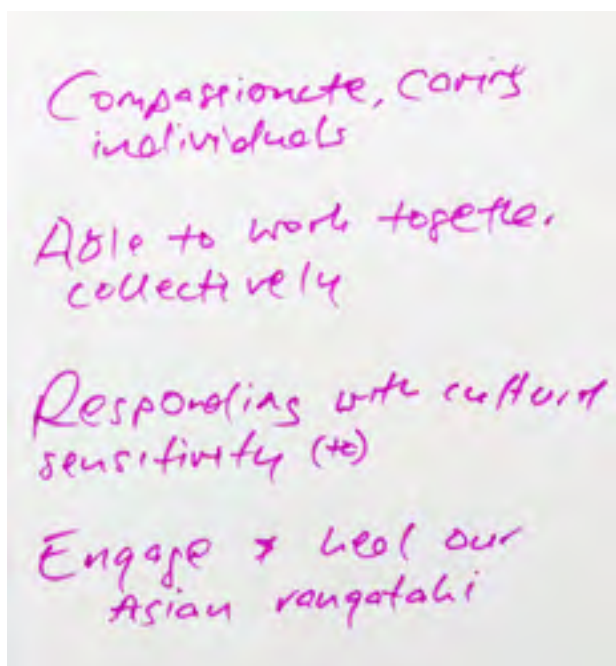 Compassionate, caring
individuals
Able to work together
collectively
Responding with cultural
sensitivity (to)
Engage & heal our
Asian rangatahi